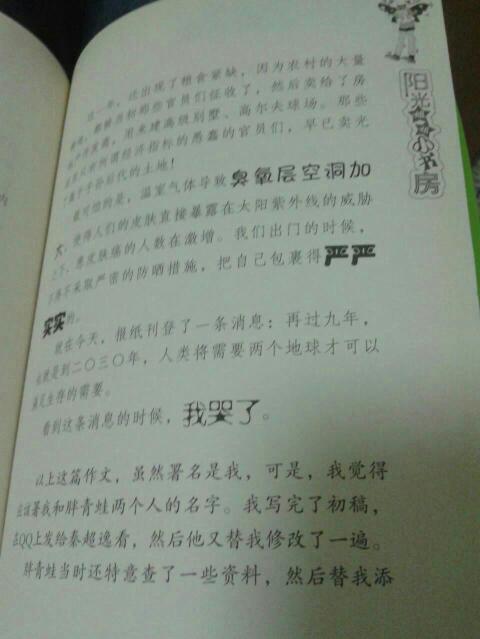 这一年，还出现了粮食紧缺，因为农村的大量
都被当初那些官员们征收了，然后卖给了房
地产开发商，用来建高级别墅、高尔夫球场。那些
所谓经济指标的愚蠢的官员们，早已卖光
了属于子孙后代的土地！
最可怕的是，温室气体导致臭氧层空洞加
大，使得人们的皮肤直接暴露在太阳紫外线的威胁
之下，患皮肤癌的人数在激增。我们出门的时候，
不得不采取严密的防晒措施，把自己包裹得严严
实实的。
就在今天，报纸刊登了一条消息：再过九年，
也就是到二〇三〇年，人类将需要两个地球才可以
满足生存的需要。
看到这条消息的时候，我哭了。
以上这篇作文，虽然署名是我，可是，我觉得
应该署我和胖青蛙两个人的名字。我写完了初稿，
在QQ上发给秦超逸看，然后他又替我修改了一遍。
胖青蛙当时还特意查了一些资料，然后替我添
阳光小书房